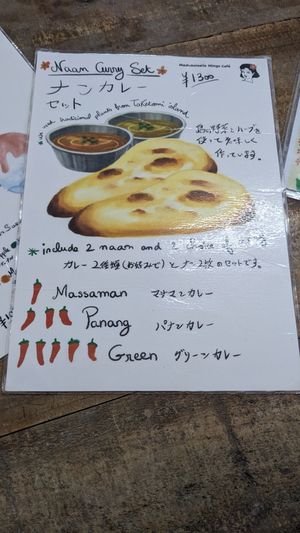 Mademoiselle Wings Café
Naam Curry Set
ナンカレー
セット
¥1300
traditional plants from Taketomi island
島の野菜とハーブを
使って美味しく
作っています。
* include 2 naam and 2
カレー 2種類(お好みで)とナン2枚のセットです。
Massaman マサマンカレー
Panang パナンカレー
Green グリーンカレー